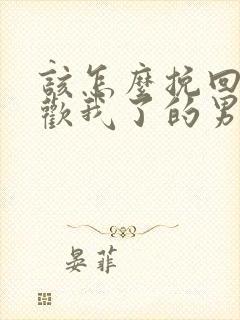 該怎麼挽回
歡我了的男
晏菲